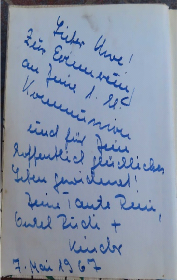 Lieber Uwe!
Zur Erinnerung
an Deine 1. Hl.
Kommunion
und für Dein
hoffentlich glückliches
Leben gewidmet!
Deine Tante Reni,
Onkel Rudi +
Kinder
7. Mai 1967